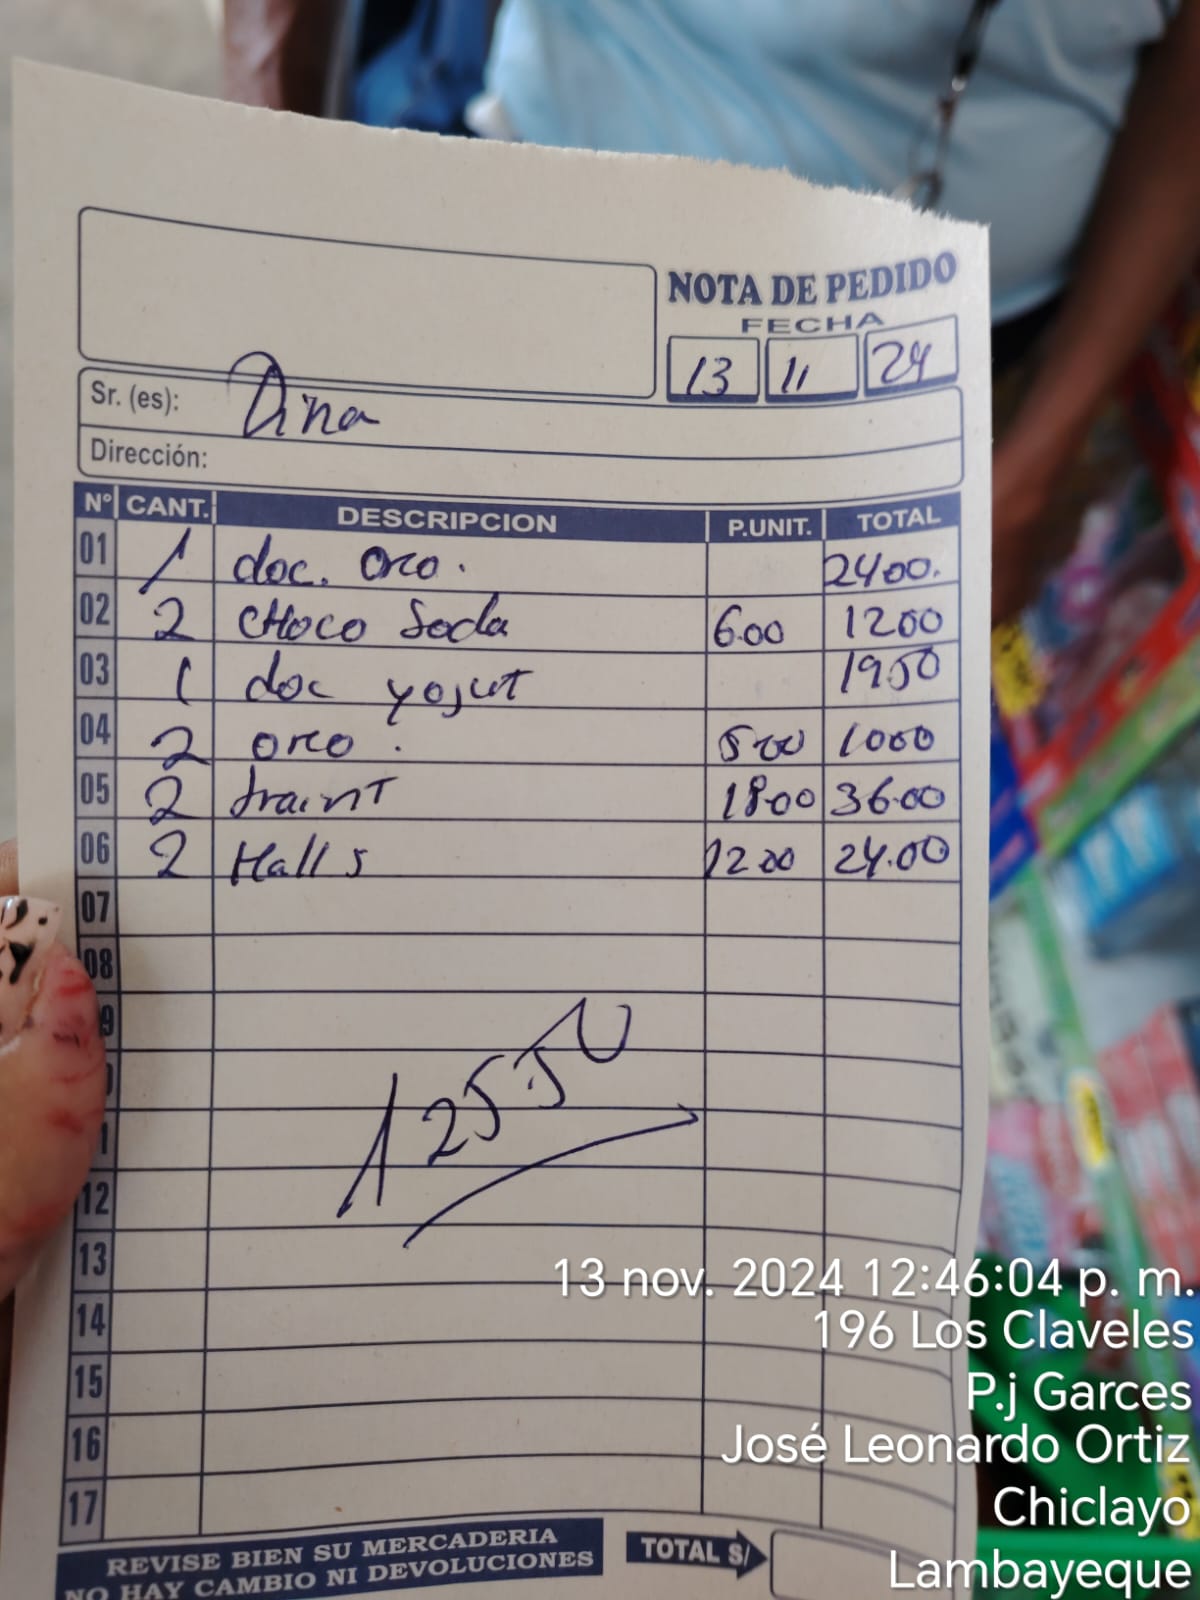 NOTA DE PEDIDO
FECHA
13 11 24
Sr. (es): Dina
Dirección:
N° CANT. DESCRIPCION P.UNIT. TOTAL
01 1 doc. oreo. 2400.
02 2 CHOCO Soda 6.00 1200
03 1 doc yojurt 1950
04 2 oreo. 500 1000
05 2 18.00 36.00
06 2 Halls 12.00 24.00
07
08
9
1
12
125.50
13
14
15
16
17
REVISE BIEN SU MERCADERIA
NO HAY CAMBIO NI DEVOLUCIONES
TOTAL S/
13 nov. 2024 12:46:04 p. m.
196 Los Claveles
P.j Garces
José Leonardo Ortiz
Chiclayo
Lambayeque